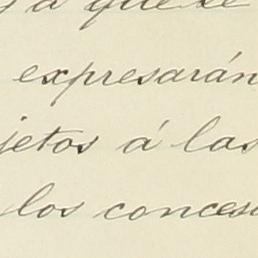 ya que se
expresarán
jetos á las
los conces